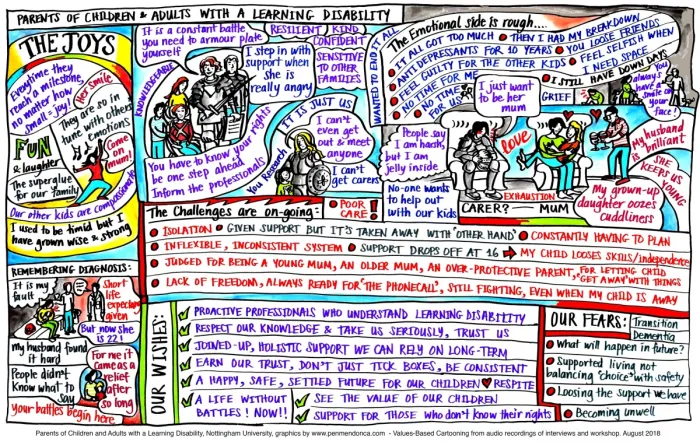 PARENTS OF CHILDREN & ADULTS WITH A LEARNING DISABILITY
THE JOYS
Everytime they
reach a milestone,
no matter how
small = joy!
Her smile
They are so in
tune with others
emotions
FUN
& laughter
The superglue
for our family
Come
on
mum!
Our other kids are compassionate
I used to be timid but I
have grown wise & strong
It is a constant battle
you need to armour plate
yourself
RESILIENT
KIND
CONFIDENT
SENSITIVE
TO OTHER
FAMILIES
KNOWLEDGEABLE
I step in with
support when
she is
really angry
You have to know your rights
be one step ahead
Inform the professionals
You Research
IT IS JUST US
I can't
even get
out & meet
anyone
I can't
get carers
WANTED TO END IT ALL
The Emotional side is rough....
IT ALL GOT TOO MUCH
THEN I HAD MY BREAKDOWN
ANTI DEPRESSANTS FOR 10 YEARS
YOU LOOSE FRIENDS
FEEL GUILTY FOR THE OTHER KIDS
FEEL SELFISH WHEN
I NEED SPACE
NO TIME FOR ME
NO TIME
FOR US
I STILL HAVE DOWN DAYS
GRIEF
You
always
have a
smile on
your
face!
I just want
to be her
mum
People say
I am harsh,
but I am
jelly inside
love
No-one wants
to help
out with our kids
EXHAUSTION
CARER?
MUM
my husband
is brilliant
SHE
KEEPS US
YOUNG
My grown-up
daughter oozes
cuddliness
The Challenges are on-going:
POOR
CARE!
ISOLATION
GIVEN SUPPORT BUT IT'S TAKEN AWAY WITH 'OTHER HAND'
CONSTANTLY HAVING TO PLAN
INFLEXIBLE, INCONSISTENT SYSTEM
SUPPORT DROPS OFF AT 16
MY CHILD LOOSES SKILLS/independence
JUDGED FOR BEING A YOUNG MUM, AN OLDER MUM, AN OVER-PROTECTIVE PARENT, FOR LETTING CHILD
"GET AWAY" WITH THINGS
LACK OF FREEDOM, ALWAYS READY FOR 'THE PHONECALL', STILL FIGHTING, EVEN WHEN MY CHILD IS AWAY
REMEMBERING DIAGNOSIS:
It is my
fault
Short
life
expectancy
given
But now she
is 22!
my husband found
it hard
People didn't
Know what to
say
For me it
came as a
relief
after
so long
Your battles begin here
OUR WISHES:
PROACTIVE PROFESSIONALS WHO UNDERSTAND LEARNING DISABILITY
RESPECT OUR KNOWLEDGE & TAKE US SERIOUSLY, TRUST US
JOINED-UP, HOLISTIC SUPPORT WE CAN RELY ON LONG-TERM
EARN OUR TRUST, DON'T JUST TICK BOXES, BE CONSISTENT
A HAPPY, SAFE, SETTLED FUTURE FOR OUR CHILDREN ♥ RESPITE
A LIFE WITHOUT
BATTLES! NOW!!
SEE THE VALUE OF OUR CHILDREN
SUPPORT FOR THOSE WHO DON'T KNOW their rights
OUR FEARS:
Transition
Dementia
What will happen in future?
Supported living not
balancing "choice" with safety
Loosing the support we have
Becoming unwell
Parents of Children and Adults with a Learning Disability, Nottingham University, graphics by www.penmendonca.com - Values-Based Cartooning from audio recordings of interviews and workshop. August 2018